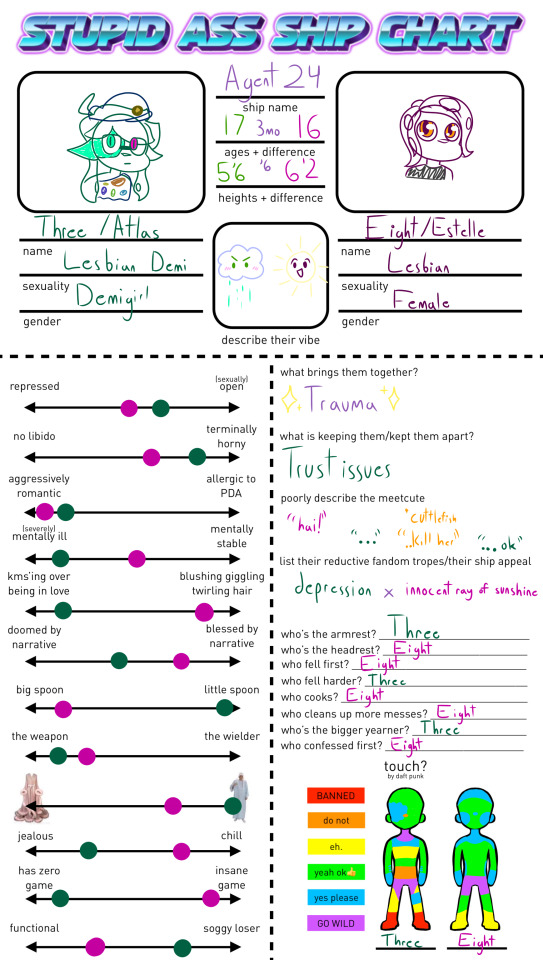 STUPID ASS SHIP CHART
Agent 24
ship name
17 3mo 16
ages + difference
5'6 '6 6'2
heights + difference
Three /Atlas
name
Lesbian Demi
sexuality
Demigirl
gender
Eight/Estelle
name
Lesbian
sexuality
Female
gender
describe their vibe
repressed
(sexually)
open
no libido
terminally
horny
aggressively
romantic
allergic to
PDA
(severely)
mentally ill
mentally
stable
kms'ing over
being in love
blushing giggling
twirling hair
doomed by
narrative
blessed by
narrative
big spoon
little spoon
the weapon
the wielder
jealous
chill
has zero
game
insane
game
functional
soggy loser
what brings them together?
Trauma
what is keeping them/kept them apart?
Trust issues
poorly describe the meetcute
"hai!"
"..."
*cuttlefish
"..kill her"
"... ok"
list their reductive fandom tropes/their ship appeal
depression x innocent ray of sunshine
who's the armrest? Three
who's the headrest? Eight
who fell first? Eight
who fell harder? Three
who cooks? Eight
who cleans up more messes? Eight
who's the bigger yearner? Three
who confessed first? Eight
touch?
by daft punk
BANNED
do not
eh.
yeah ok👍
yes please
GO WILD
Three
Eight